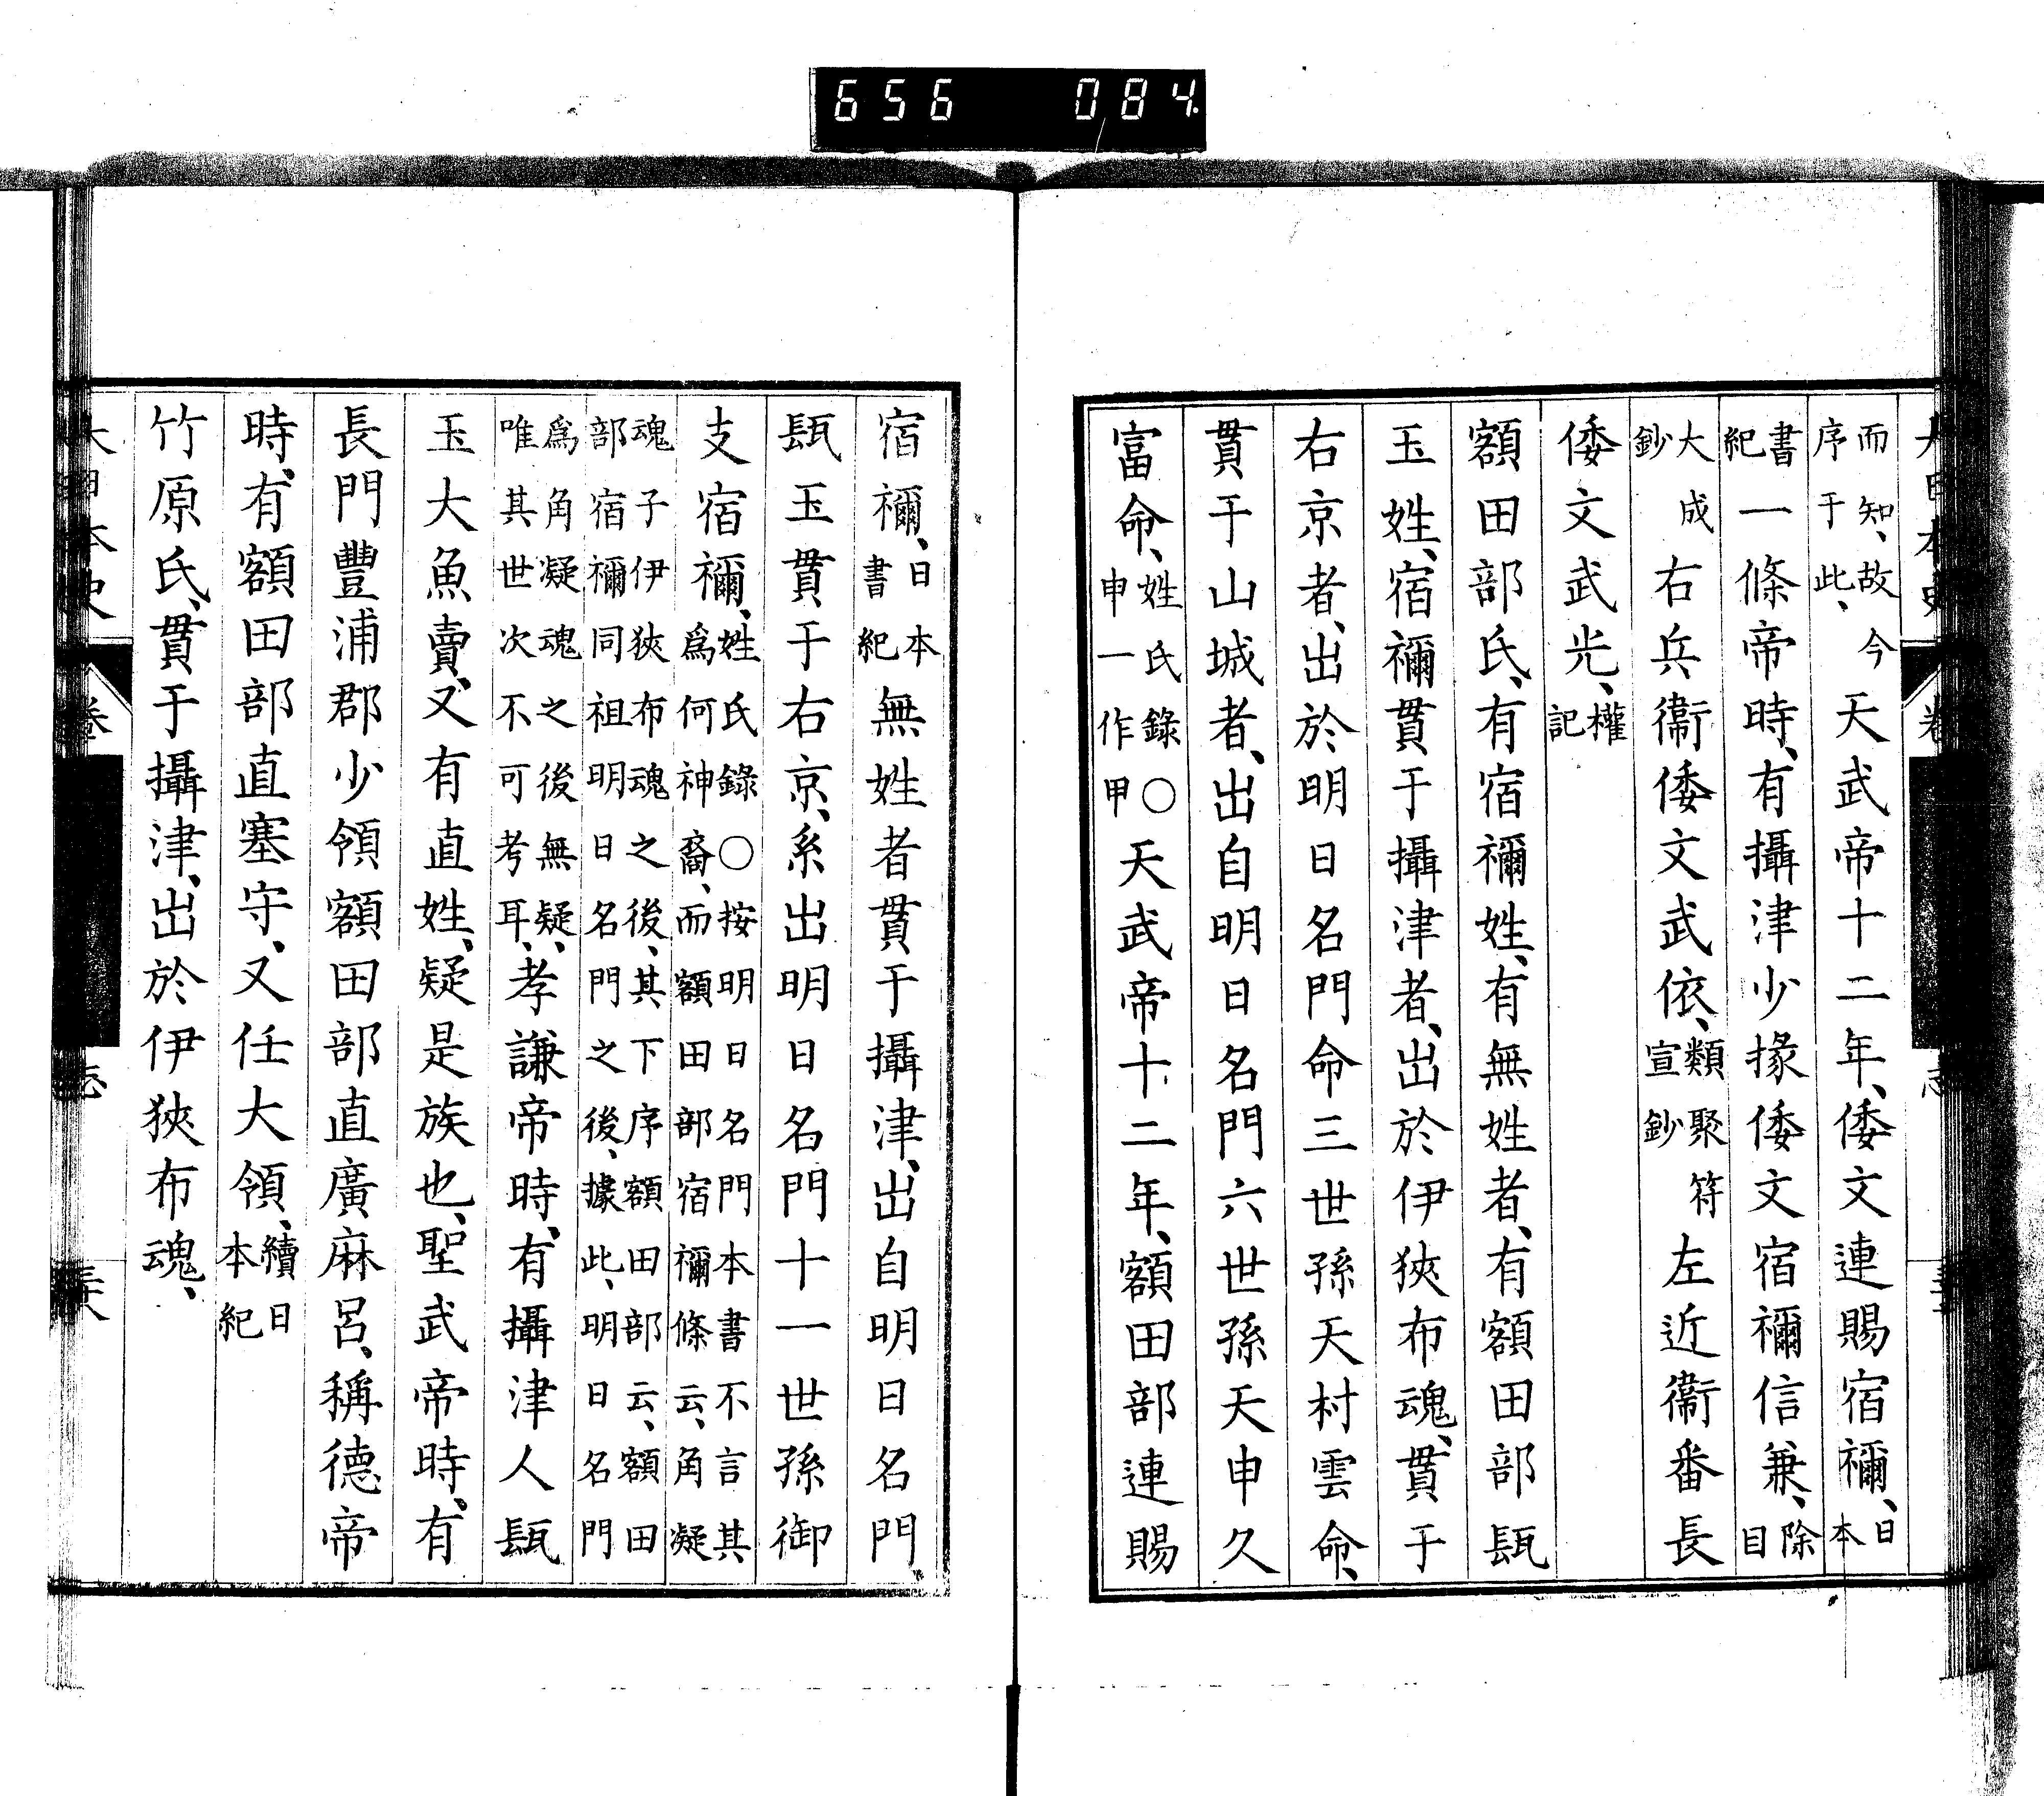 656 084
而知、故今序于此、天武帝十二年、倭文連賜宿禰、日本
書紀一條帝時、有攝津少掾倭文宿禰信兼、除目
大成鈔右兵衞倭文武依、類聚符宣鈔左近衞番長
倭文武光、權記
額田部氏、有宿禰姓、有無姓者、有額田部𤭖
玉姓、宿禰貫于攝津者、出於伊狹布魂、貫于
右京者、出於明日名門命三世孫天村雲命、
貫于山城者、出自明日名門六世孫天申久
富命、姓氏錄○申一作甲天武帝十二年、額田部連賜
宿禰、日本書紀無姓者貫于攝津、出自明日名門
𤭖玉貫于右京、系出明日名門十一世孫御
支宿禰、姓氏錄○按明日名門本書不言其爲何神裔、而額田部宿禰條云、角凝
魂子伊狹布魂之後、其下序額田部云、額田部宿禰同祖明日名門之後、據此、明日名門
爲角凝魂之後無疑、唯其世次不可考耳、孝謙帝時、有攝津人𤭖
玉大魚賣、又有直姓、疑是族也、聖武帝時、有
長門豐浦郡少領額田部直廣麻呂、稱德帝
時、有額田部直塞守、又任大領、續日本紀
竹原氏、貫于攝津、出於伊狹布魂、
大日本史